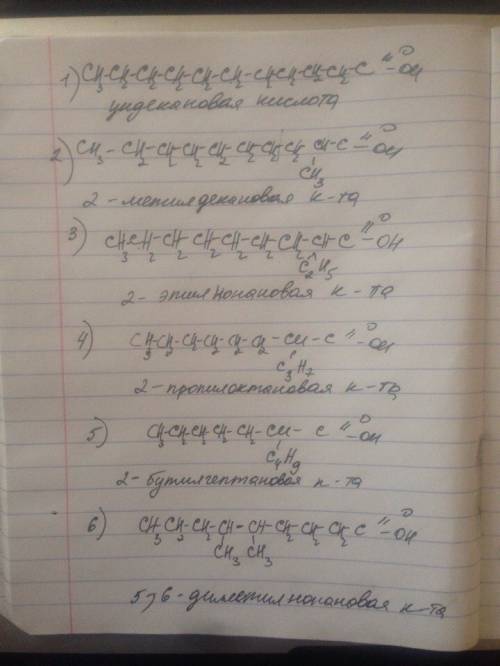 1) CH₃-CH₂-CH₂-CH₂-CH₂-CH₂-CH₂-CH₂-CH₂-CH₂-C=O-OH
ундекановая кислота
2) CH₃-CH₂-CH₂-CH₂-CH₂-CH₂-CH₂-CH₂-CH-C=O-OH
CH₃
2-метилдекановая к-та
3) CH₃-CH₂-CH₂-CH₂-CH₂-CH₂-CH₂-CH-C=O-OH
C₂H₅
2-этилнонановая к-та
4) CH₃-CH₂-CH₂-CH₂-CH₂-CH₂-CH-C=O-OH
C₃H₇
2-пропилоктановая к-та
5) CH₃-CH₂-CH₂-CH₂-CH₂-CH-C=O-OH
C₄H₉
2-бутилгептановая к-та
6) CH₃-CH₂-CH₂-CH-CH-CH₂-CH₂-CH₂-C=O-OH
CH₃ CH₃
5,6-диметилнонановая к-та